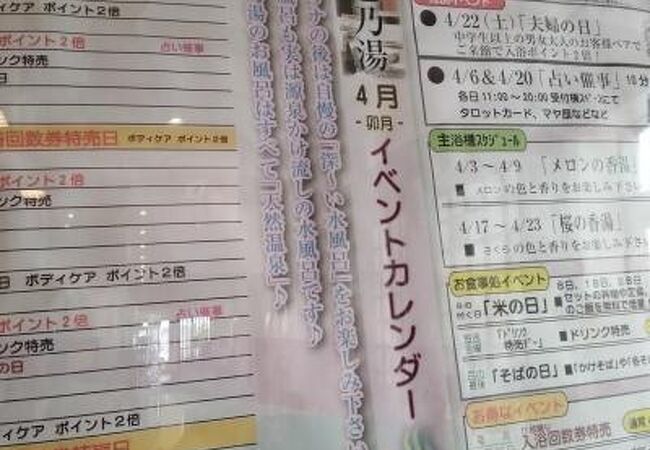 ボディケア ポイント2倍
ポイント2倍 占い催事
ンク特売
回数券特売日 ボディケア ポイント2倍
ポイント2倍
ンク特売
日 ボディケア ポイント2倍
ポイント2倍 占い催事
ンク特売
の日
ボディケア ポイント2倍
乃湯
4月
-卯月-
イベントカレンダー
ナの後は自慢の「深〜い水風呂」をお楽しみ下さい
風呂も実は源泉かけ流しの水風呂です♪
湯のお風呂はすべて「天然温泉」♪
●4/22(土)「夫婦の日」
中学生以上の男女大人のお客様ペアで
ご来館で入浴ポイント2倍!
●4/6&4/20「占い催事」
各日11:00〜20:00 受付横スペースにて
タロットカード、マヤ暦などなど
主浴槽スケジュール
4/3〜4/9 「メロンの香湯」
■メロンの色と香りをお楽しみ下さ
4/17〜4/23 「桜の香湯」
■さくらの色と香りをお楽しみ下さ
お食事処イベント
「米の日」
8日、18日、28日
「ドリンク特売デー」 ■ドリンク特売
「そばの日」 ■「かけそば」や
お得なイベント
入浴回数券特売